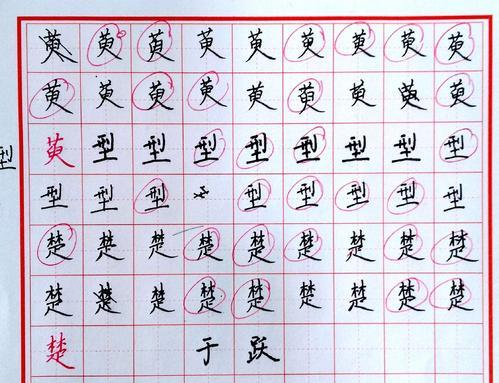 萸萸萸萸萸萸萸萸萸
萸萸萸萸萸萸萸萸萸
型
萸型型型型型型型型
型型型型型型型型
楚楚楚楚楚楚楚楚楚
楚楚楚楚楚楚楚楚楚
楚 于跃